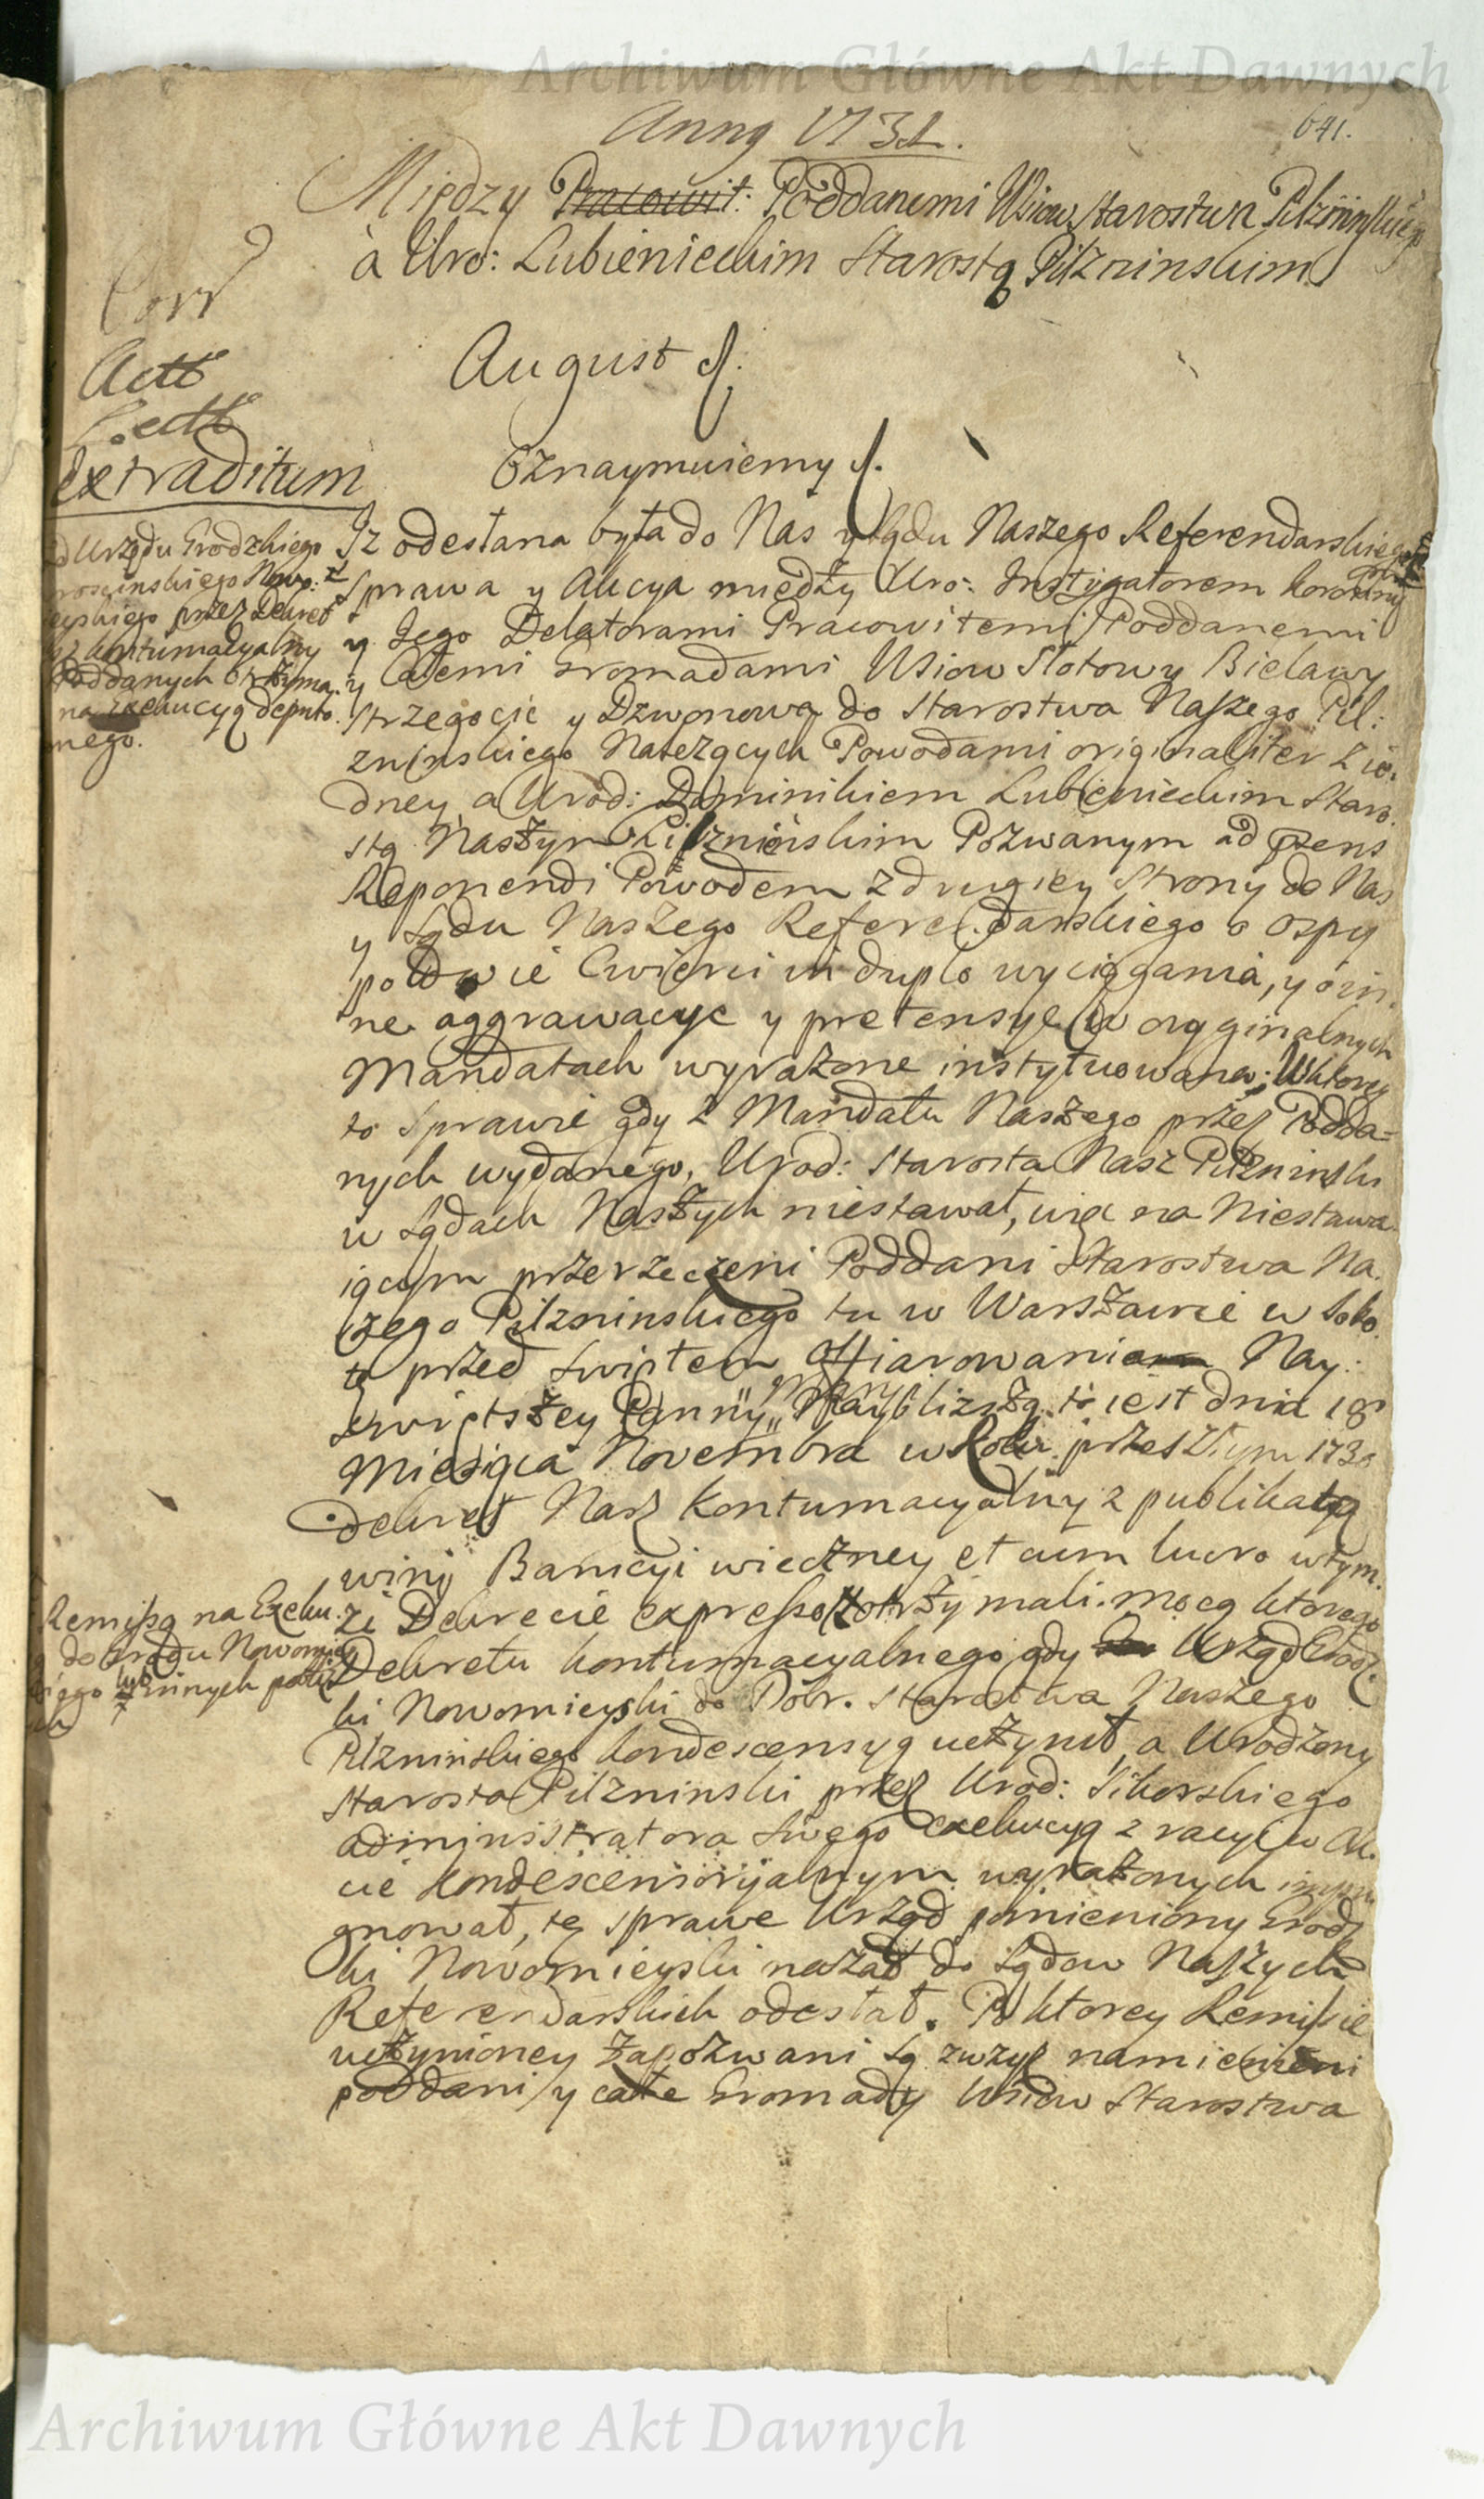 Archiwum Główne Akt Dawnych
Anno 1731.
641.
Między Pracowit: Poddanemi Wsiow Starostwa Pilzninskiego
à Uro: Lubienieckim Starostą Pilzninskim
Corr
Actt
Lectt
Extraditum
August &.
Oznaymuiemy &.
Urzędu Grodzkiego
przez Dekret
kontumacyalny
Poddanych otrzyma.
na Exekucyą deputo.
nego.
Iz odesłana była do Nas y Sądu Naszego Referendarskiego
Sprawa y Akcya między Uro: Instygatorem Koronnym
y Jego Delatorami Pracowitemi Poddanemi
y Całemi Gromadami Wsiow Słotowy Bielawy
Strzegocic y Dzwonowa do Starostwa Naszego Pil:
zninskiego Należących Powodami originaliter z ie.
dney, a Urod: Dominikiem Lubienieckim Staro.
stą Naszym Pilzninskim Pozwanym ad
Reponendi Powodem z drugiey Strony do Nas
y Sądu Naszego Referendarskiego o ospy
po Dwie Cwierci in duplo wyciągania, y in.
ne aggrawacye y pretensye w oryginalnych
Mandatach wyrażone instytuowana; W ktorey
to Sprawie gdy z Mandatu Naszego przez Podda=
nych wydanego, Urod: Starosta Nasz Pilzninski
w Sądach Naszych niestawał, więc na Niestawa.
iącym przerzeczeni Poddani Starostwa Na.
szego Pilzninskiego tu w Warszawie w Sobo.
tę przed Swiętem Offiarowania Nay:
swiętszey Panny Naybliższą to iest dnia 18
Miesiąca Novembra w Roku przeszłym 1730
dekret Nasz Kontumacyalny z publikatą
winy Banicyi wieczney et cum lucro w tym.
że Dekrecie expresso otrzymali. mocą ktorego
Remissa na Exeku.
do Urzędu Nowomiey
Dekretu kontumacyalnego gdy Urząd Grodz.
ki Nowomieyski do Dobr Starostwa Naszego
Pilzninskiego kondescensyą uczynił, a Urodzony
Starosta Pilzninski przez Urod: Sikorskiego
administratora Swego exekucyą z racyi w Ak.
cie kondescensoryalnym wyrażonych
gnował, tę sprawe Urząd pomieniony Grodz
ki Nowomieyski nazad do Sądow Naszych
Referendarskich odesłał. Po ktorey Remissie
uczynioney Zapozwani są zwyż namienieni
poddani y całe Gromady Wsiow Starostwa
Archiwum Główne Akt Dawnych